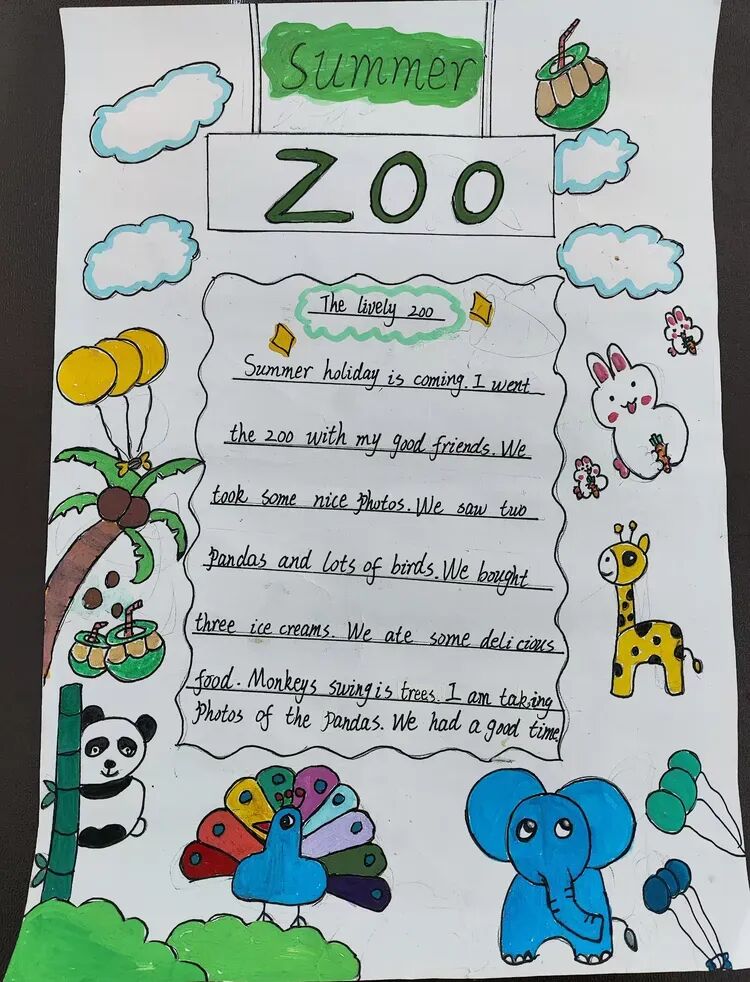 Summer
ZOO
The lively zoo
Summer holiday is coming. I went
the zoo with my good friends. We
took some nice photos. We saw two
Pandas and lots of birds. We bought
three ice creams. We ate some delicious
food. Monkeys swing is trees. I am taking
Photos of the Pandas. We had a good time.